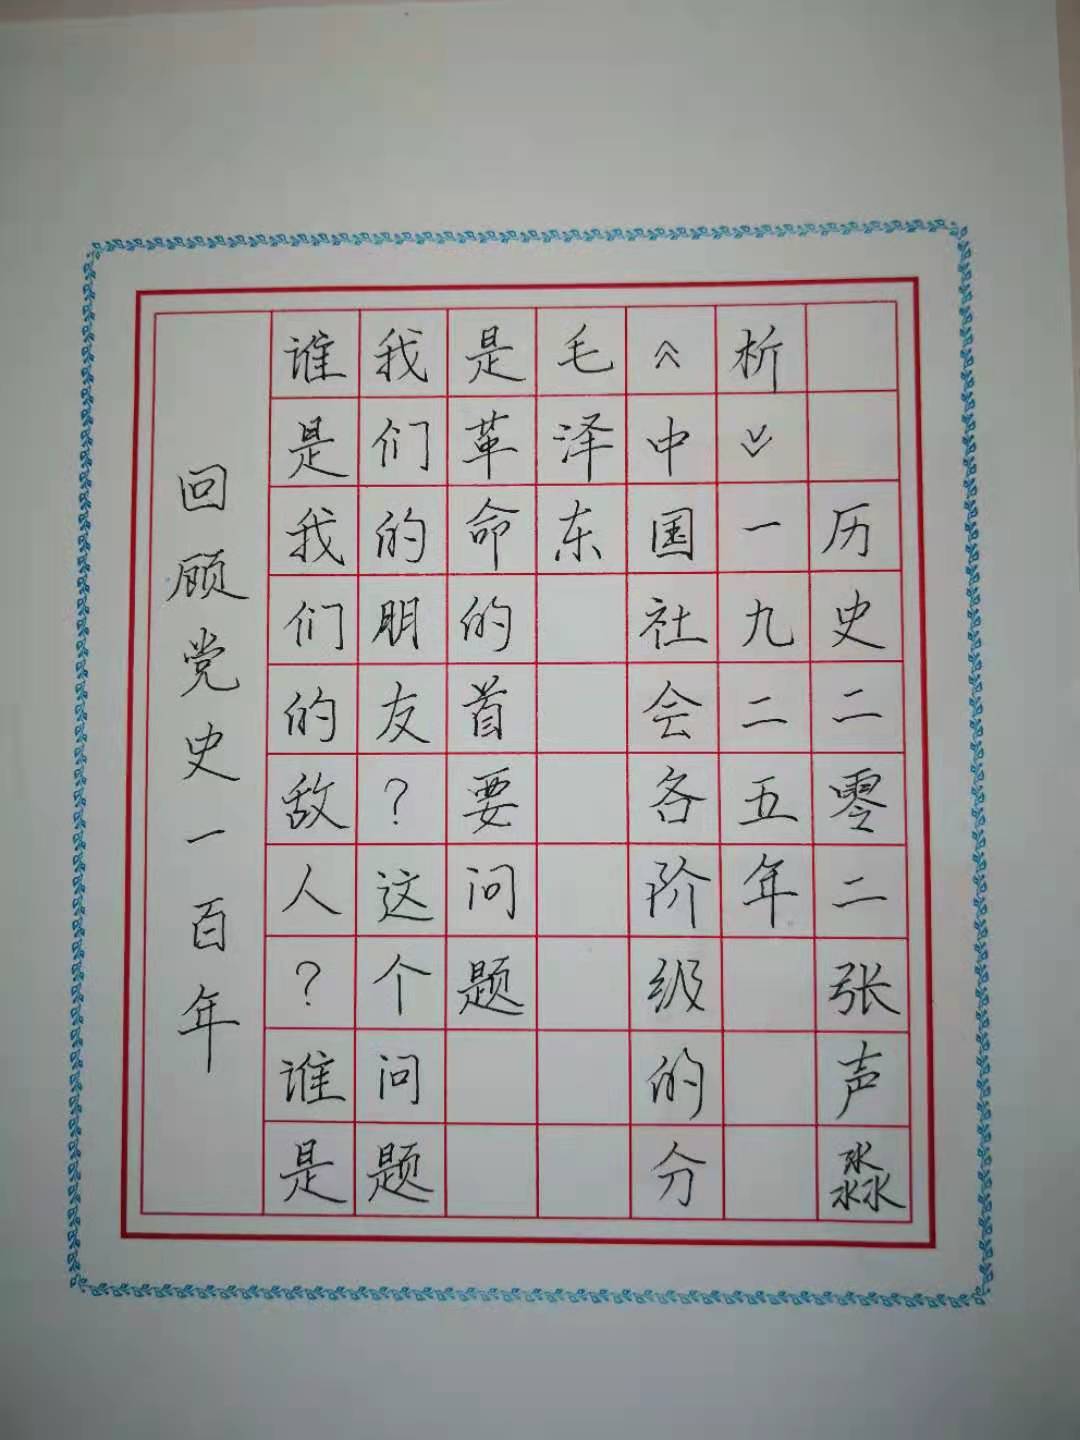 回顾党史一百年
谁是我们的敌人?谁是
我们的朋友?这个问题
是革命的首要问题
毛泽东
《中国社会各阶级的分
析》一九二五年
历史二零二张声淼